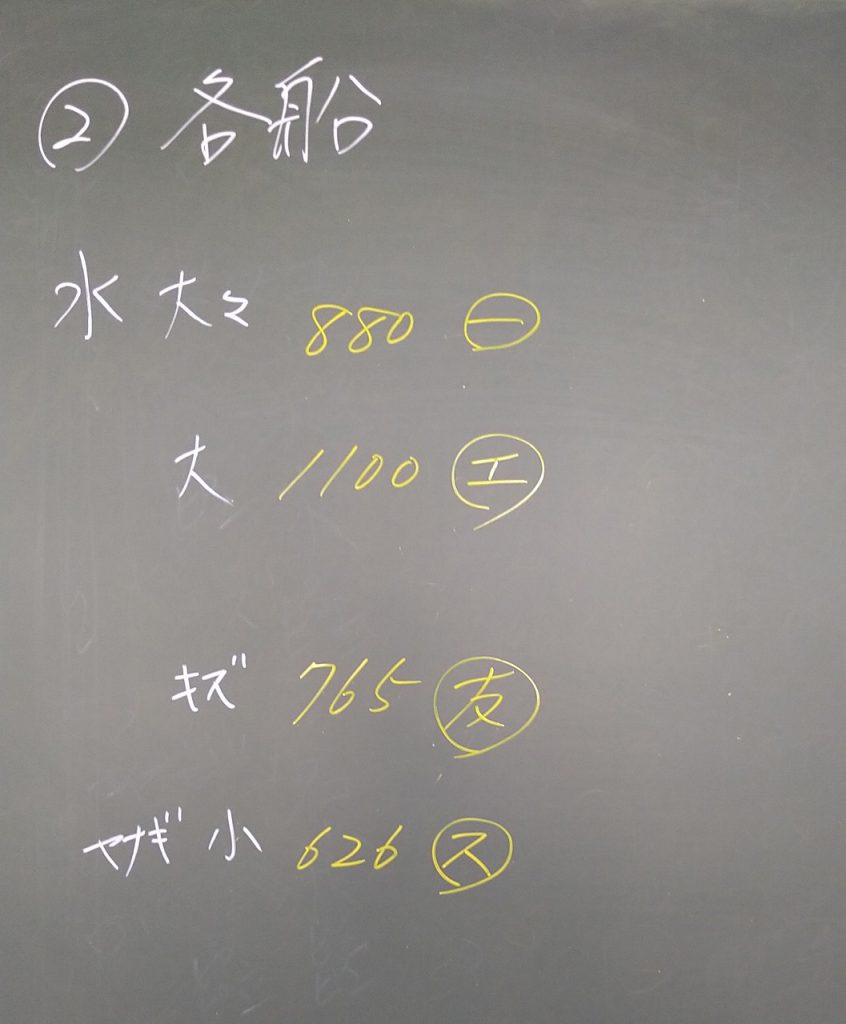 ② 各船
水 大々 880 ㊀
大 1100 ㋓
キズ 765 友
ヤナギ 小 626 ㋜